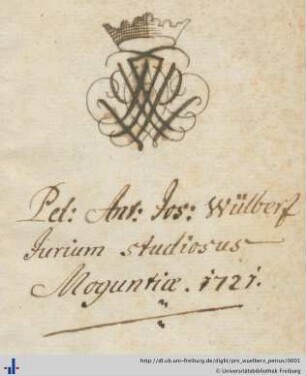 Pet: Ant: Jos: Wülberz
Jurium studiosus
Moguntiæ. 1721.
http://dl.ub.uni-freiburg.de/diglit/prv_wuelberz_petrus/0001
© Universitätsbibliothek Freiburg